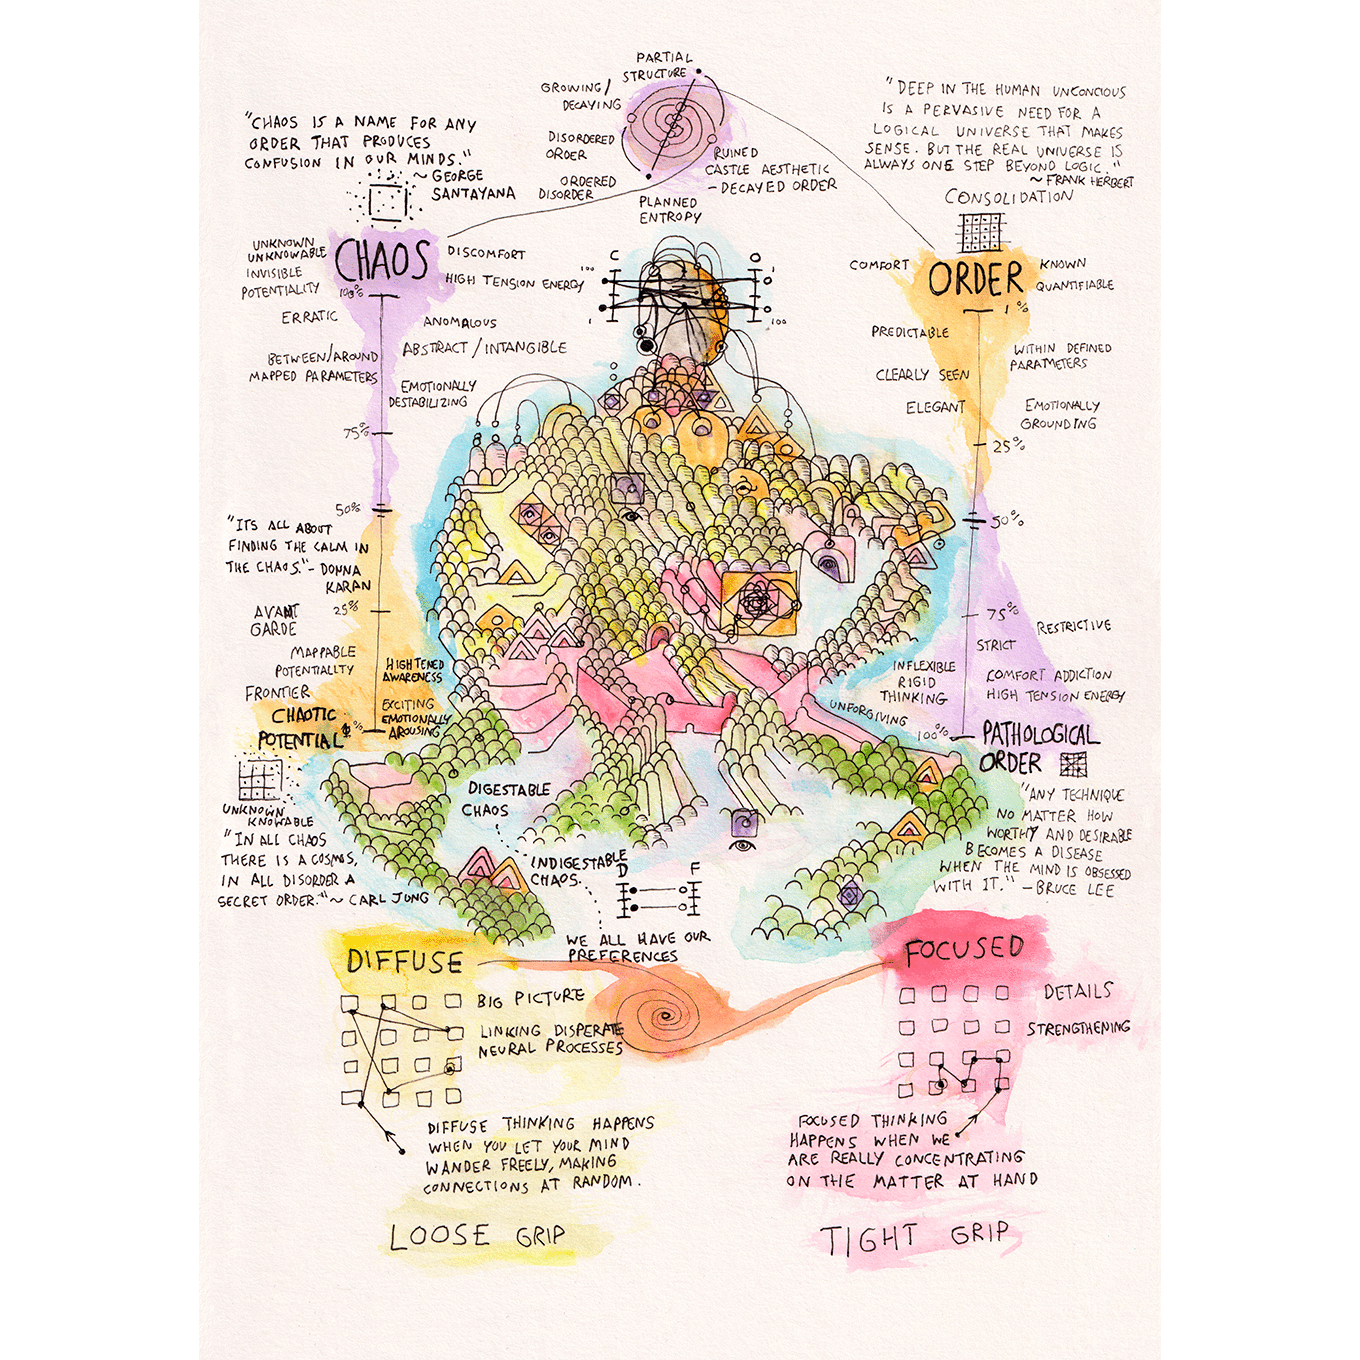 PARTIAL
STRUCTURE
GROWING/
DECAYING
DISORDERED
ORDER
ORDERED
DISORDER
RUINED
CASTLE AESTHETIC
- DECAYED ORDER
PLANNED
ENTROPY
"CHAOS IS A NAME FOR ANY
ORDER THAT PRODUCES
CONFUSION IN OUR MINDS."
~ GEORGE
SANTAYANA
"DEEP IN THE HUMAN UNCONCIOUS
IS A PERVASIVE NEED FOR A
LOGICAL UNIVERSE THAT MAKES
SENSE. BUT THE REAL UNIVERSE IS
ALWAYS ONE STEP BEYOND LOGIC."
~ FRANK HERBERT
CONSOLIDATION
CHAOS
UNKNOWN
UNKNOWABLE
INVISIBLE
POTENTIALITY
100%
DISCOMFORT
HIGH TENSION ENERGY
ERRATIC
ANOMALOUS
ABSTRACT / INTANGIBLE
BETWEEN/AROUND
MAPPED PARAMETERS
EMOTIONALLY
DESTABILIZING
75%
50%
C
O
100
1
1
100
ORDER
COMFORT
KNOWN
QUANTIFIABLE
1%
PREDICTABLE
WITHIN DEFINED
PARAMETERS
CLEARLY SEEN
ELEGANT
EMOTIONALLY
GROUNDING
25%
50%
"ITS ALL ABOUT
FINDING THE CALM IN
THE CHAOS." - DONNA
KARAN
25%
AVANT
GARDE
MAPPABLE
POTENTIALITY
HIGHTENED
AWARENESS
FRONTIER
EXCITING
EMOTIONALLY
AROUSING
CHAOTIC
POTENTIAL
%
UNKNOWN
KNOWABLE
"IN ALL CHAOS
THERE IS A COSMOS,
IN ALL DISORDER A
SECRET ORDER." ~ CARL JUNG
75%
RESTRICTIVE
STRICT
INFLEXIBLE
RIGID
THINKING
COMFORT ADDICTION
HIGH TENSION ENERGY
UNFORGIVING
100%
PATHOLOGICAL
ORDER
"ANY TECHNIQUE
NO MATTER HOW
WORTHY AND DESIRABLE
BECOMES A DISEASE
WHEN THE MIND IS OBSESSED
WITH IT." - BRUCE LEE
DIGESTABLE
CHAOS
INDIGESTABLE
CHAOS
D
F
WE ALL HAVE OUR
PREFERENCES
DIFFUSE
BIG PICTURE
LINKING DISPERATE
NEURAL PROCESSES
DIFFUSE THINKING HAPPENS
WHEN YOU LET YOUR MIND
WANDER FREELY, MAKING
CONNECTIONS AT RANDOM.
LOOSE GRIP
FOCUSED
DETAILS
STRENGTHENING
FOCUSED THINKING
HAPPENS WHEN WE
ARE REALLY CONCENTRATING
ON THE MATTER AT HAND
TIGHT GRIP